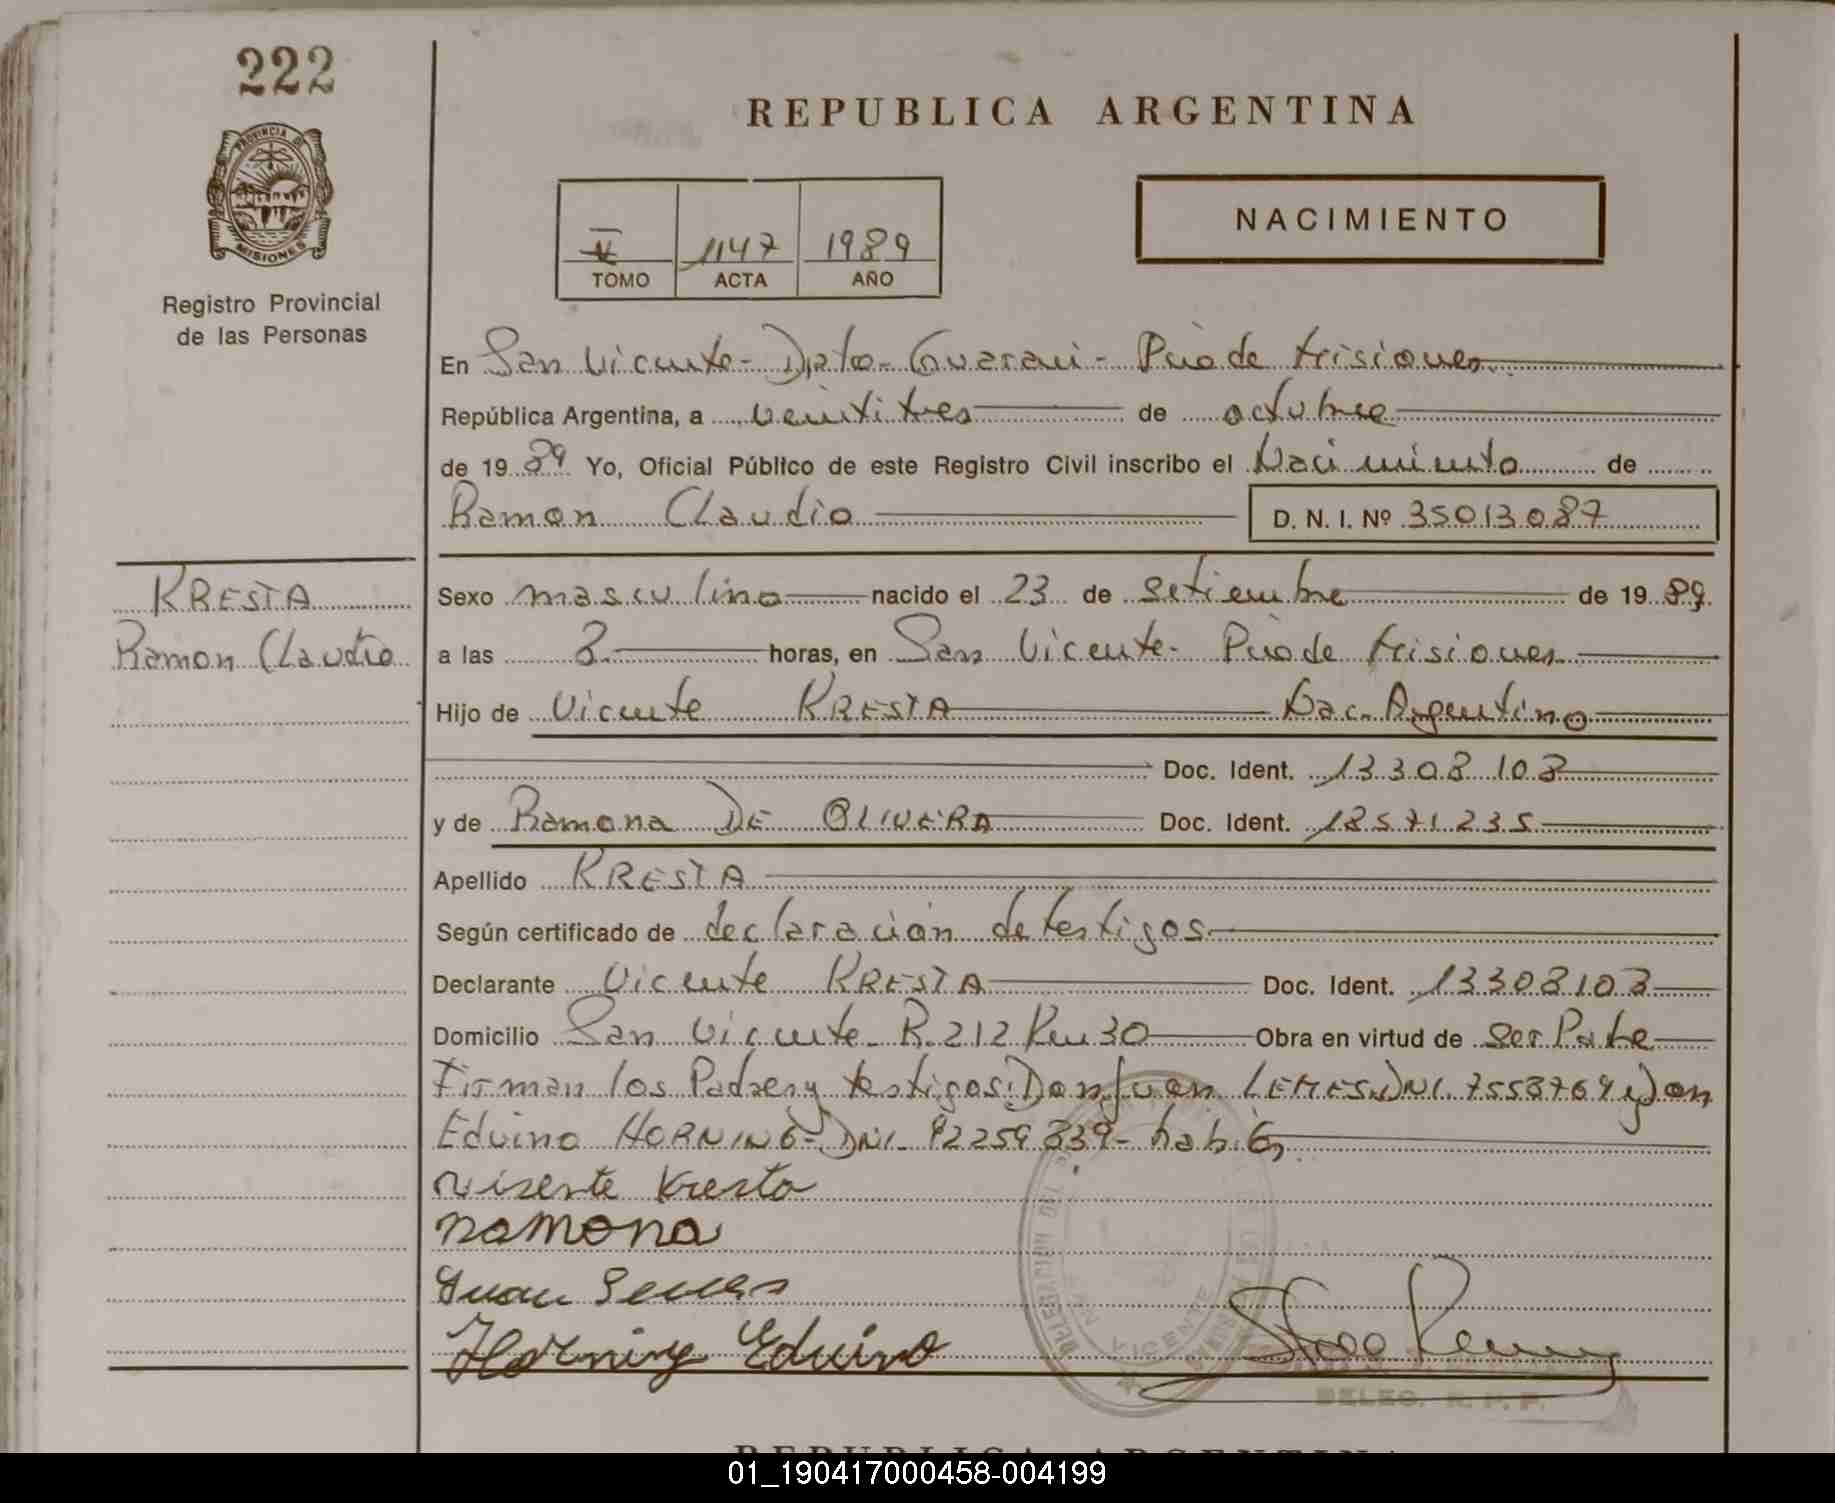 222
REPUBLICA ARGENTINA
PROVINCIA DE MISIONES
NACIMIENTO
1147 1989
TOMO ACTA AÑO
Registro Provincial
de las Personas
En San Vicente - Dpto - Guarani - Pcia de Misiones
República Argentina, a veintitres de octubre
de 1989 Yo, Oficial Público de este Registro Civil inscribo el Nacimiento de
Ramon Claudio D. N. I. Nº 35013087
KRESTA
Ramon Claudio
Sexo masculino nacido el 23 de setiembre de 1989.
a las 8 horas, en San Vicente - Pcia de Misiones
Hijo de Vicente KRESTA Nac. Argentino
Doc. Ident. 13308108
y de Ramona DE OLIVERA Doc. Ident. 18571235
Apellido KRESTA
Según certificado de declaración de testigos
Declarante Vicente KRESTA Doc. Ident. 13308108
Domicilio San Vicente - R. 212 Km 30 Obra en virtud de ser Padre
Firman los Padres y testigos: Don Juan LEMES DNI. 7558769 y Don
Eduino HORNING - DNI - 92259339 -
Visente Kresta
Ramona
Juan Lemes
Horning Eduino
DELEGACION DEL
SAN VICENTE
MISIONES
DELEG. R. P. P.
REPUBLICA ARGENTINA
01_190417000458-004199